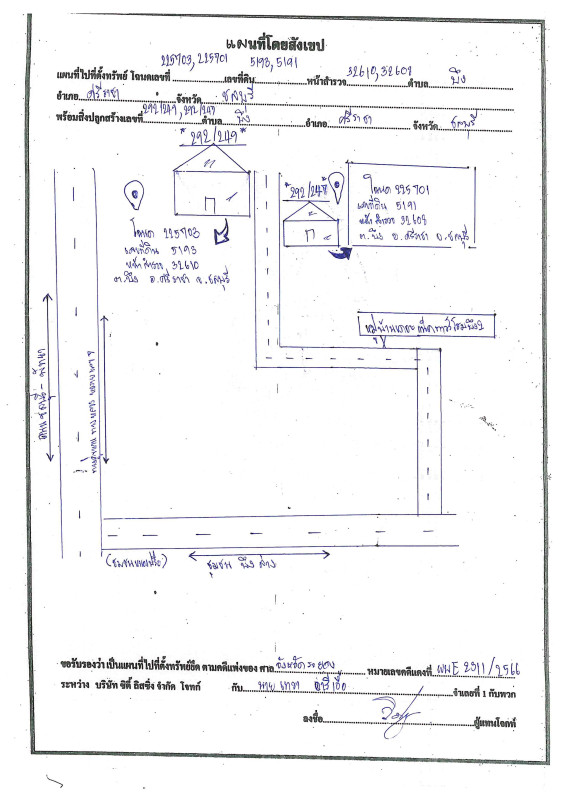 แผนที่โดยสังเขป
225703, 225701 5193, 5191 32610, 32609
แผนที่ไปที่ตั้งทรัพย์ โฉนดเลขที่ เลขที่ดิน หน้าสำรวจ ตำบล บึง
อำเภอ ศรีราชา จังหวัด ชลบุรี
พร้อมสิ่งปลูกสร้างเลขที่ 292/249, 292/248 ตำบล บึง อำเภอ ศรีราชา จังหวัด ชลบุรี
*292/249*
โฉนด 225703
เลขที่ดิน 5193
หน้าสำรวจ 32610
ต.บึง อ.ศรีราชา จ.ชลบุรี
*292/248*
โฉนด 225701
เลขที่ดิน 5191
หน้าสำรวจ 32609
ต.บึง อ.ศรีราชา จ.ชลบุรี
หมู่บ้าน
ถนนชลบุรี - พัทยา
ชุมชน บึง ล่าง
ขอรับรองว่า เป็นแผนที่ไปที่ตั้งทรัพย์ยึด ตามคดีแพ่งของ ศาล จังหวัดระยอง หมายเลขคดีแดงที่ ผบE 2311/2566
ระหว่าง บริษัท ซิตี้ ลิสซิ่ง จำกัด โจทก์ กับ นาย จำเลยที่ 1 กับพวก
ลงชื่อ ผู้แทนโจทก์